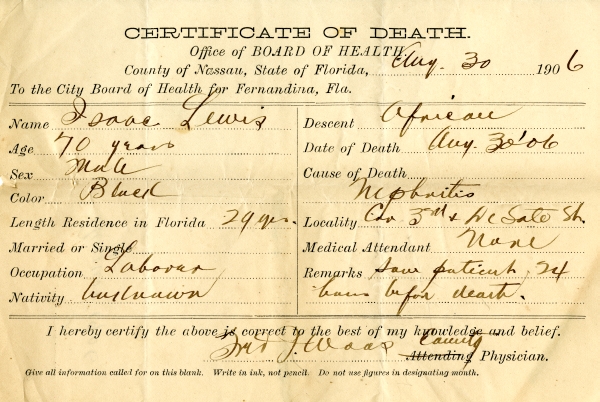 CERTIFICATE OF DEATH.
Office of BOARD OF HEALTH,
County of Nassau, State of Florida, Aug. 30 1906
To the City Board of Health for Fernandina, Fla.
Name Isaac Lewis
Age 70 years
Sex Male
Color Black
Length Residence in Florida 29 yrs.
Married or Single
Occupation Laborer
Nativity unknown
Descent African
Date of Death Aug 30 '06
Cause of Death
Nephritis
Locality Cor 3rd & De Soto St.
Medical Attendant None
Remarks Saw patient 24
hours before death.
I hereby certify the above is correct to the best of my knowledge and belief.
Fred J. Waas County
Attending Physician.
Give all information called for on this blank. Write in ink, not pencil. Do not use figures in designating month.